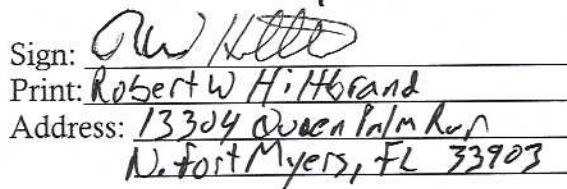 Sign:
Print: Robert W Hiltbrand
Address: 13304 Queen Palm Run
N. Fort Myers, FL 33903